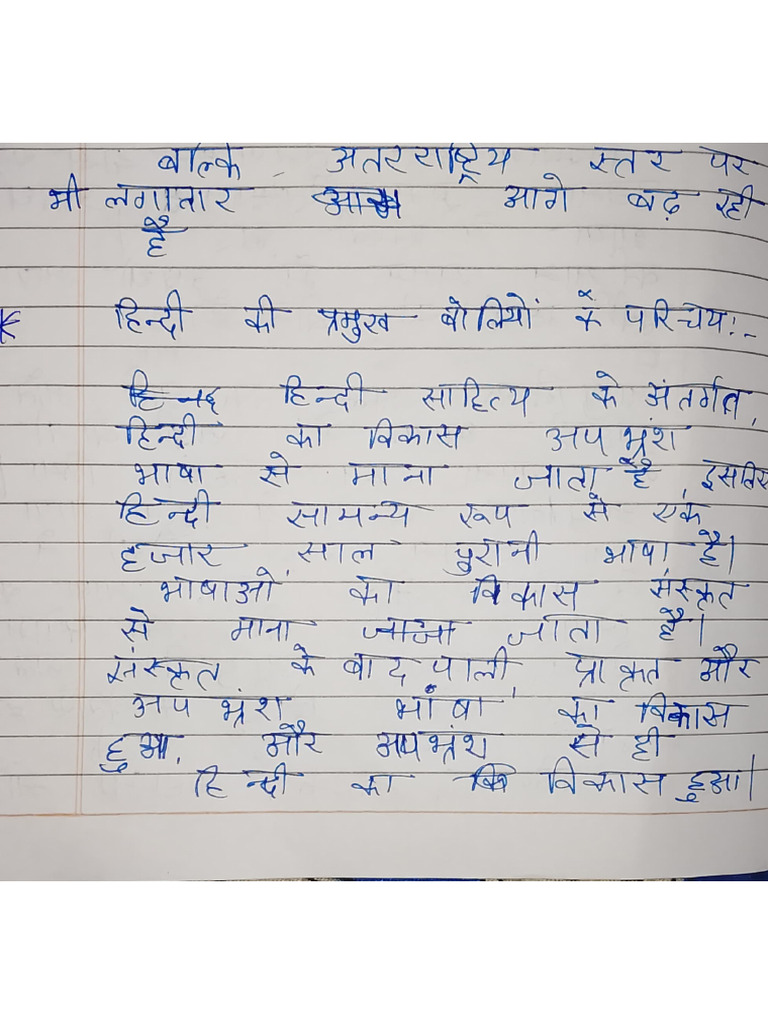 बल्कि अतरराष्ट्रिय स्तर पर
भी लगातार आगे बढ़ रही
है
हिन्दी की प्रमुख बोलियों के परिचय:-
हिन्दी साहित्य के अंतर्गत,
हिन्दी का विकास अपभ्रंश
भाषा से माना जाता है, इसलिए
हिन्दी सामन्य रूप से एक
हजार साल पुरानी भाषा है।
भाषाओं का विकास संस्कृत
से माना जाजा जाता है।
संस्कृत के बाद पाली, प्राकृत और
अपभ्रंश भाषा का विकास
हुआ, और अपभ्रंश से ही
हिन्दी का विकास हुआ।